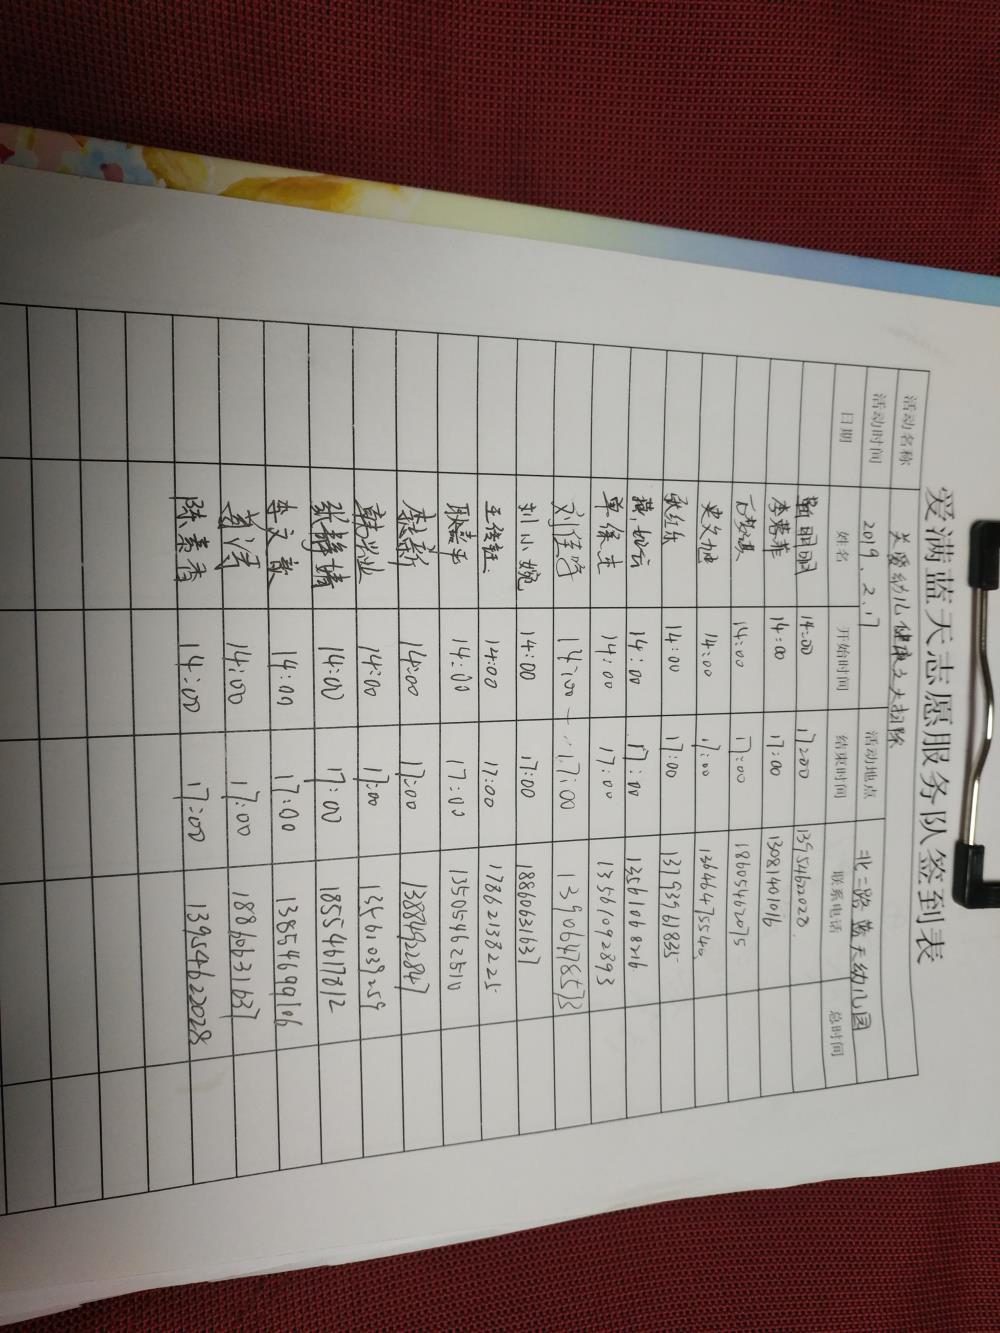 爱满蓝天志愿服务队签到表
活动名称 关爱幼儿健康之大扫除
活动时间 2019.2.17 活动地点 北二路蓝天幼儿园
日期 姓名 开始时间 结束时间 联系电话 总时间
丽丽 14:00 17:00 13954622028
李蓉菲 14:00 17:00 13081401016
14:00 17:00 18605462075
14:00 17:00 13646475540
张红乐 14:00 17:00 13793961835
14:00 17:00 13561068216
单绿走 14:00 17:00 13561092893
刘佳琦 14:00 — 17:00 13906478573
刘小婉 14:00 17:00 18860631637
王佳钰 14:00 17:00 17862138225
耿嘉平 14:00 17:00 13505462510
李志新 14:00 17:00 13884922847
韩兴业 14:00 17:00 13561039259
张静靖 14:00 17:00 18554617812
李文豪 14:00 17:00 13854699106
14:00 17:00 18860631637
陈素香 14:00 17:00 13954622028